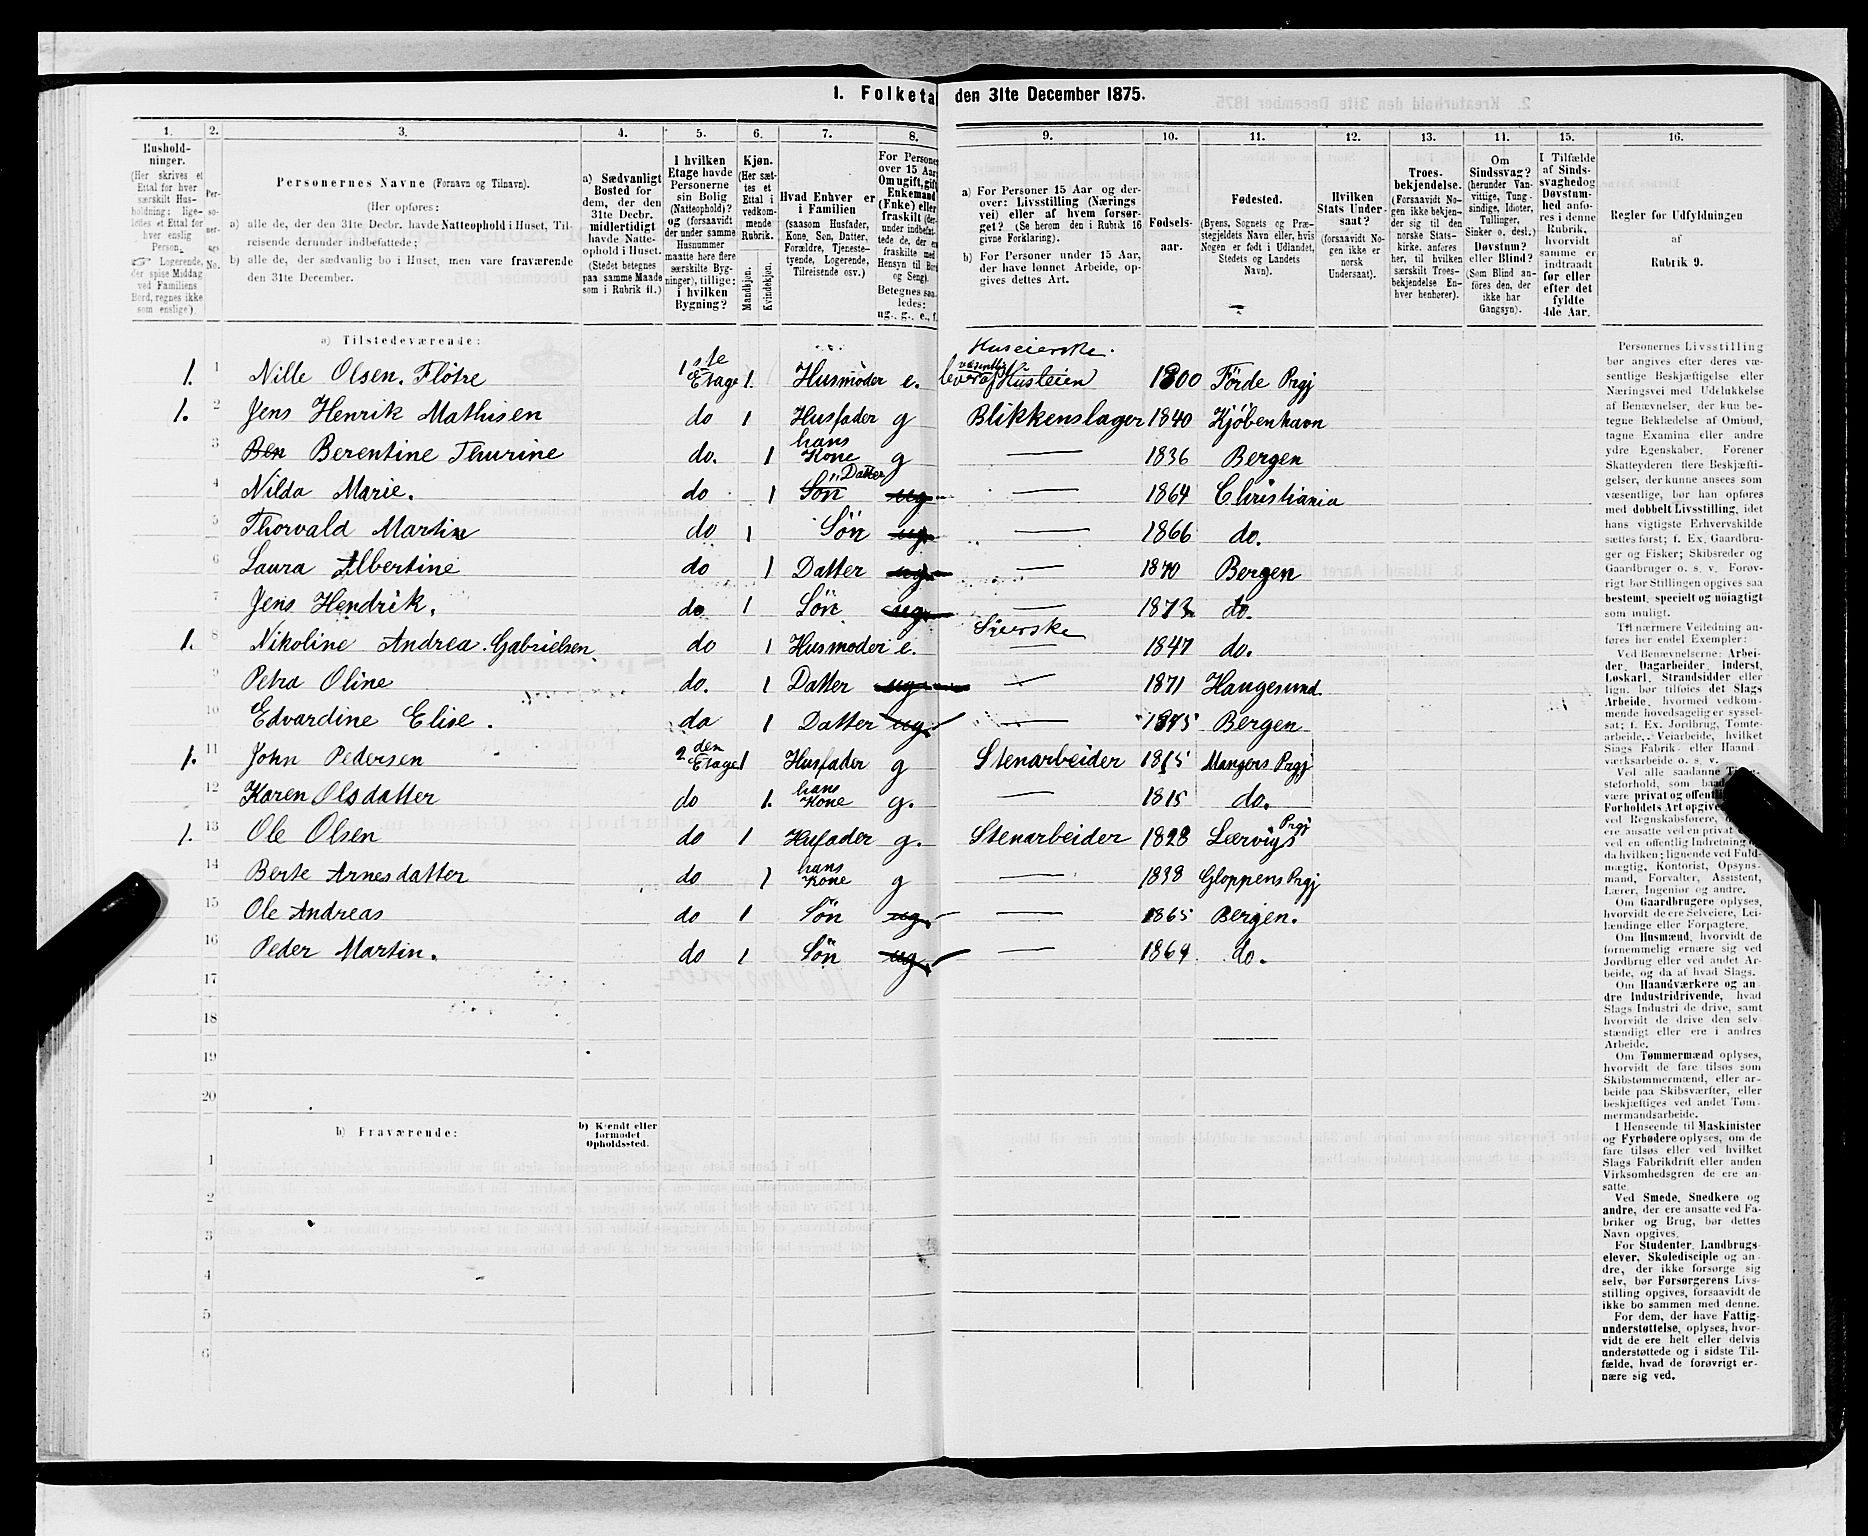 1. Folketa den 31te December 1875.
1. 2. 3. 4. 5. 6. 7. 8. 9. 10. 11. 12. 13. 11. 15. 16.
Hushold-
ninger.
(Her skrives et
Ettal for hver
særskilt Hus-
holdning; lige-
ledes et Ettal for
hver enslig
Person.
Logerende,
der spise Middag
ved Familiens
Bord, regnes ikke
som enslige).
Per-
so-
ner-
nes
No.
Personernes Navne (Fornavn og Tilnavn).
(Her opføres:
a) alle de, der den 31te Decbr. havde Natteophold i Huset, Til-
reisende derunder indbefattede;
b) alle de, der sædvanlig bo i Huset, men vare fraværende
den 31te December.
a) Sædvanligt
Bosted for
dem, der den
31te Decbr.
midlertidigt
havde Natte-
ophold i Huset.
(Stedet betegnes
paa samme Maade
som i Rubrik 11.)
I hvilken
Etage havde
Personerne
sin Bolig
(Natteophold)?
og (forsaavidt
der under samme
Husnummer
maatte høre flere
særskilte Byg-
ninger), tillige:
i hvilken
Bygning?
Kjøn.
(Her sæt-
tes et
Ettal i
vedkom-
mende
Rubrik.
Mandkjøn.
Kvindekjøn.
Hvad Enhver er
i Familien
(saasom Husfader,
Kone, Søn, Datter,
Forældre, Tjeneste-
tyende, Logerende,
Tilreisende osv.)
For Persone
over 15 Aar
Om ugift, gift
Enkemand
(Enke) eller
fraskilt (der-
under indbefat-
tede de, der er
fraskilte med
Hensyn til Bord
og Seng).
Betegnes saa-
ledes:
ug., g., e., f.
a) For Personer 15 Aar og der-
over: Livsstilling (Nærings
vei) eller af hvem forsør-
get? (Se herom den i Rubrik 16
givne Forklaring).
b) For Personer under 15 Aar,
der have lønnet Arbeide, op-
gives dettes Art.
Fødsels-
aar.
Fødested.
(Byens, Sognets og Præ-
stegjeldets Navn eller, hvis
Nogen er født i Udlandet,
Stedets og Landets
Navn).
Hvilken
Stats Under-
saat?
(forsaavidt No-
gen ikke er
norsk
Undersaat).
Troes-
bekjendelse.
(Forsaavidt No-
gen ikke bekjen-
der sig til den
norske Stats-
kirke, anføres
her, til hvilken
særskilt Troes-
bekjendelse En-
hver henhører).
Om
Sindssvag?
(herunder Van-
vittige, Tung-
sindige, Idioter,
Tullinger,
Sinker o. desl.)
Døvstum?
eller Blind?
(Som Blind an-
føres den, der
ikke har
Gangsyn).
I Tilfælde
af Sinds-
svaghed og
Døvstum-
hed anfø-
res i denne
Rubrik,
hvorvidt
samme er
indtraadt
før eller
efter det
fyldte
4de Aar.
Regler for Udfyldningen
af
Rubrik 9.
a) Tilstedeværende:
Huseierske.
1. 1 Nille Olsen. Flötre 1ste Etage 1. Husmoder e. lever af Husleien 1800 Förde Prgj
1. 2 Jens Henrik Mathisen do 1 Husfader g Blikkenslager 1840 Kjöbenhavn
3 Ben Berentine Thurine do. 1 hans Kone g — 1836 Bergen
4 Nilda Marie. do 1 Sön Datter ug — 1864 Christiania
5 Thorvald Martin do 1 Sön ug. — 1866 do.
6 Laura Albertine do 1 Datter ug. — 1870 Bergen
7 Jens Hendrik. do 1 Sön ug. — 1873 do.
1. 8 Nikoline Andrea Gabrielsen do 1 Husmoder e. Sierske — 1847 do.
9 Petra Oline do. 1 Datter ug — 1871 Haugesund
10 Edvardine Elise. do 1 Datter ug. — 1875 Bergen
1. 11 John Pedersen 2den Etage 1 Husfader g Stenarbeider 1815 Mangers Prgj
12 Karen Olsdatter do 1. hans Kone g. — 1815 do.
1. 13 Ole Olsen do 1 Hufader g. Stenarbeider 1828 Lærvigs Prgj
14 Berte Arnesdatter do 1 hans Kone g — 1838 Gloppens Prgj
15 Ole Andreas do 1 Sön ug. — 1865 Bergen.
16 Peder Martin. do 1 Sön ug. — 1869 do.
17
18
19
20
b) Fraværende:
b) Kjendt eller
formodet
Opholdssted.
1
2
3
4
5
6
Personernes Livsstilling
bør angives efter deres væ-
sentlige Beskjæftigelse eller
Næringsvei med Udelukkelse
af Benævnelser, der kun be-
tegne Beklædelse af Ombud,
tagne Examina eller andre
ydre Egenskaber. Forener
Skatteyderen flere Beskjæfti-
gelser, der kunne ansees som
væsentlige, bør han opføres
med dobbelt Livsstilling, idet
hans vigtigste Erhvervskilde
sættes først; f. Ex. Gaardbru-
ger og Fisker; Skibsreder og
Gaardbruger o. s. v. Forøv-
rigt bør Stillingen opgives saa
bestemt, specielt og nöiagtigt
som muligt.
Til nærmere Veiledning an-
føres her endel Exempler:
Ved Benævnelserne: Arbei-
der, Dagarbeider, Inderst,
Løskarl, Strandsidder eller
lign. bør tilføies det Slags
Arbeide, hvormed vedkom-
mende hovedsagelig er syssel-
sat; f. Ex. Jordbrug, Tomte-
arbeide, Veiarbeide, hvilket
Slags Fabrik- eller Haand
værksarbeide o. s. v.
Ved alle saadanne
steforhold, som
være privat og offentl
Forholdets Art opgive
ved Regnskabsførere,
ere ansatte ved en privat
ved en offentlig Indretning
da hvilken; lignende ved Fuld-
mægtig, Kontorist, Opsyns-
mand, Forvalter, Assistent,
Lærer, Ingeniør og andre.
Om Gaardbrugere oplyses,
hvorvidt de ere Selveiere, Lei-
lændinge eller Forpagtere.
Om Husmænd, hvorvidt de
fornemmelig ernære sig ved
Jordbrug eller ved andet Ar-
beide, og da af hvad Slags.
Om Haandværkere og an-
dre Industridrivende, hvad
Slags Industri de drive, samt
hvorvidt de drive den selv-
stændigt eller ere i andres
Arbeide.
Om Tømmermænd oplyses,
hvorvidt de fare tilsøs som
Skibstømmermænd, eller ar-
beide paa Skibsværfter, eller
beskjæftiges ved andet Tøm-
mermandsarbeide.
I Henseende til Maskinister
og Fyrbødere oplyses, om de
fare tilsøs eller ved hvilket
Slags Fabrikdrift eller anden
Virksomhedsgren de ere an-
satte.
Ved Smede, Snedkere og
andre, der ere ansatte ved Fa-
briker og Brug, bør dettes
Navn opgives.
For Studenter, Landbrugs-
elever, Skoledisciple og an-
dre, der ikke forsørge sig
selv, bør Forsørgerens Livs-
stilling opgives, forsaavidt de
ikke bo sammen med denne.
For dem, der have Fattig-
understøttelse, oplyses, hvor-
vidt de ere helt eller delvis
understøttede og i sidste Til-
fælde, hvad de forøvrigt er-
nære sig ved.